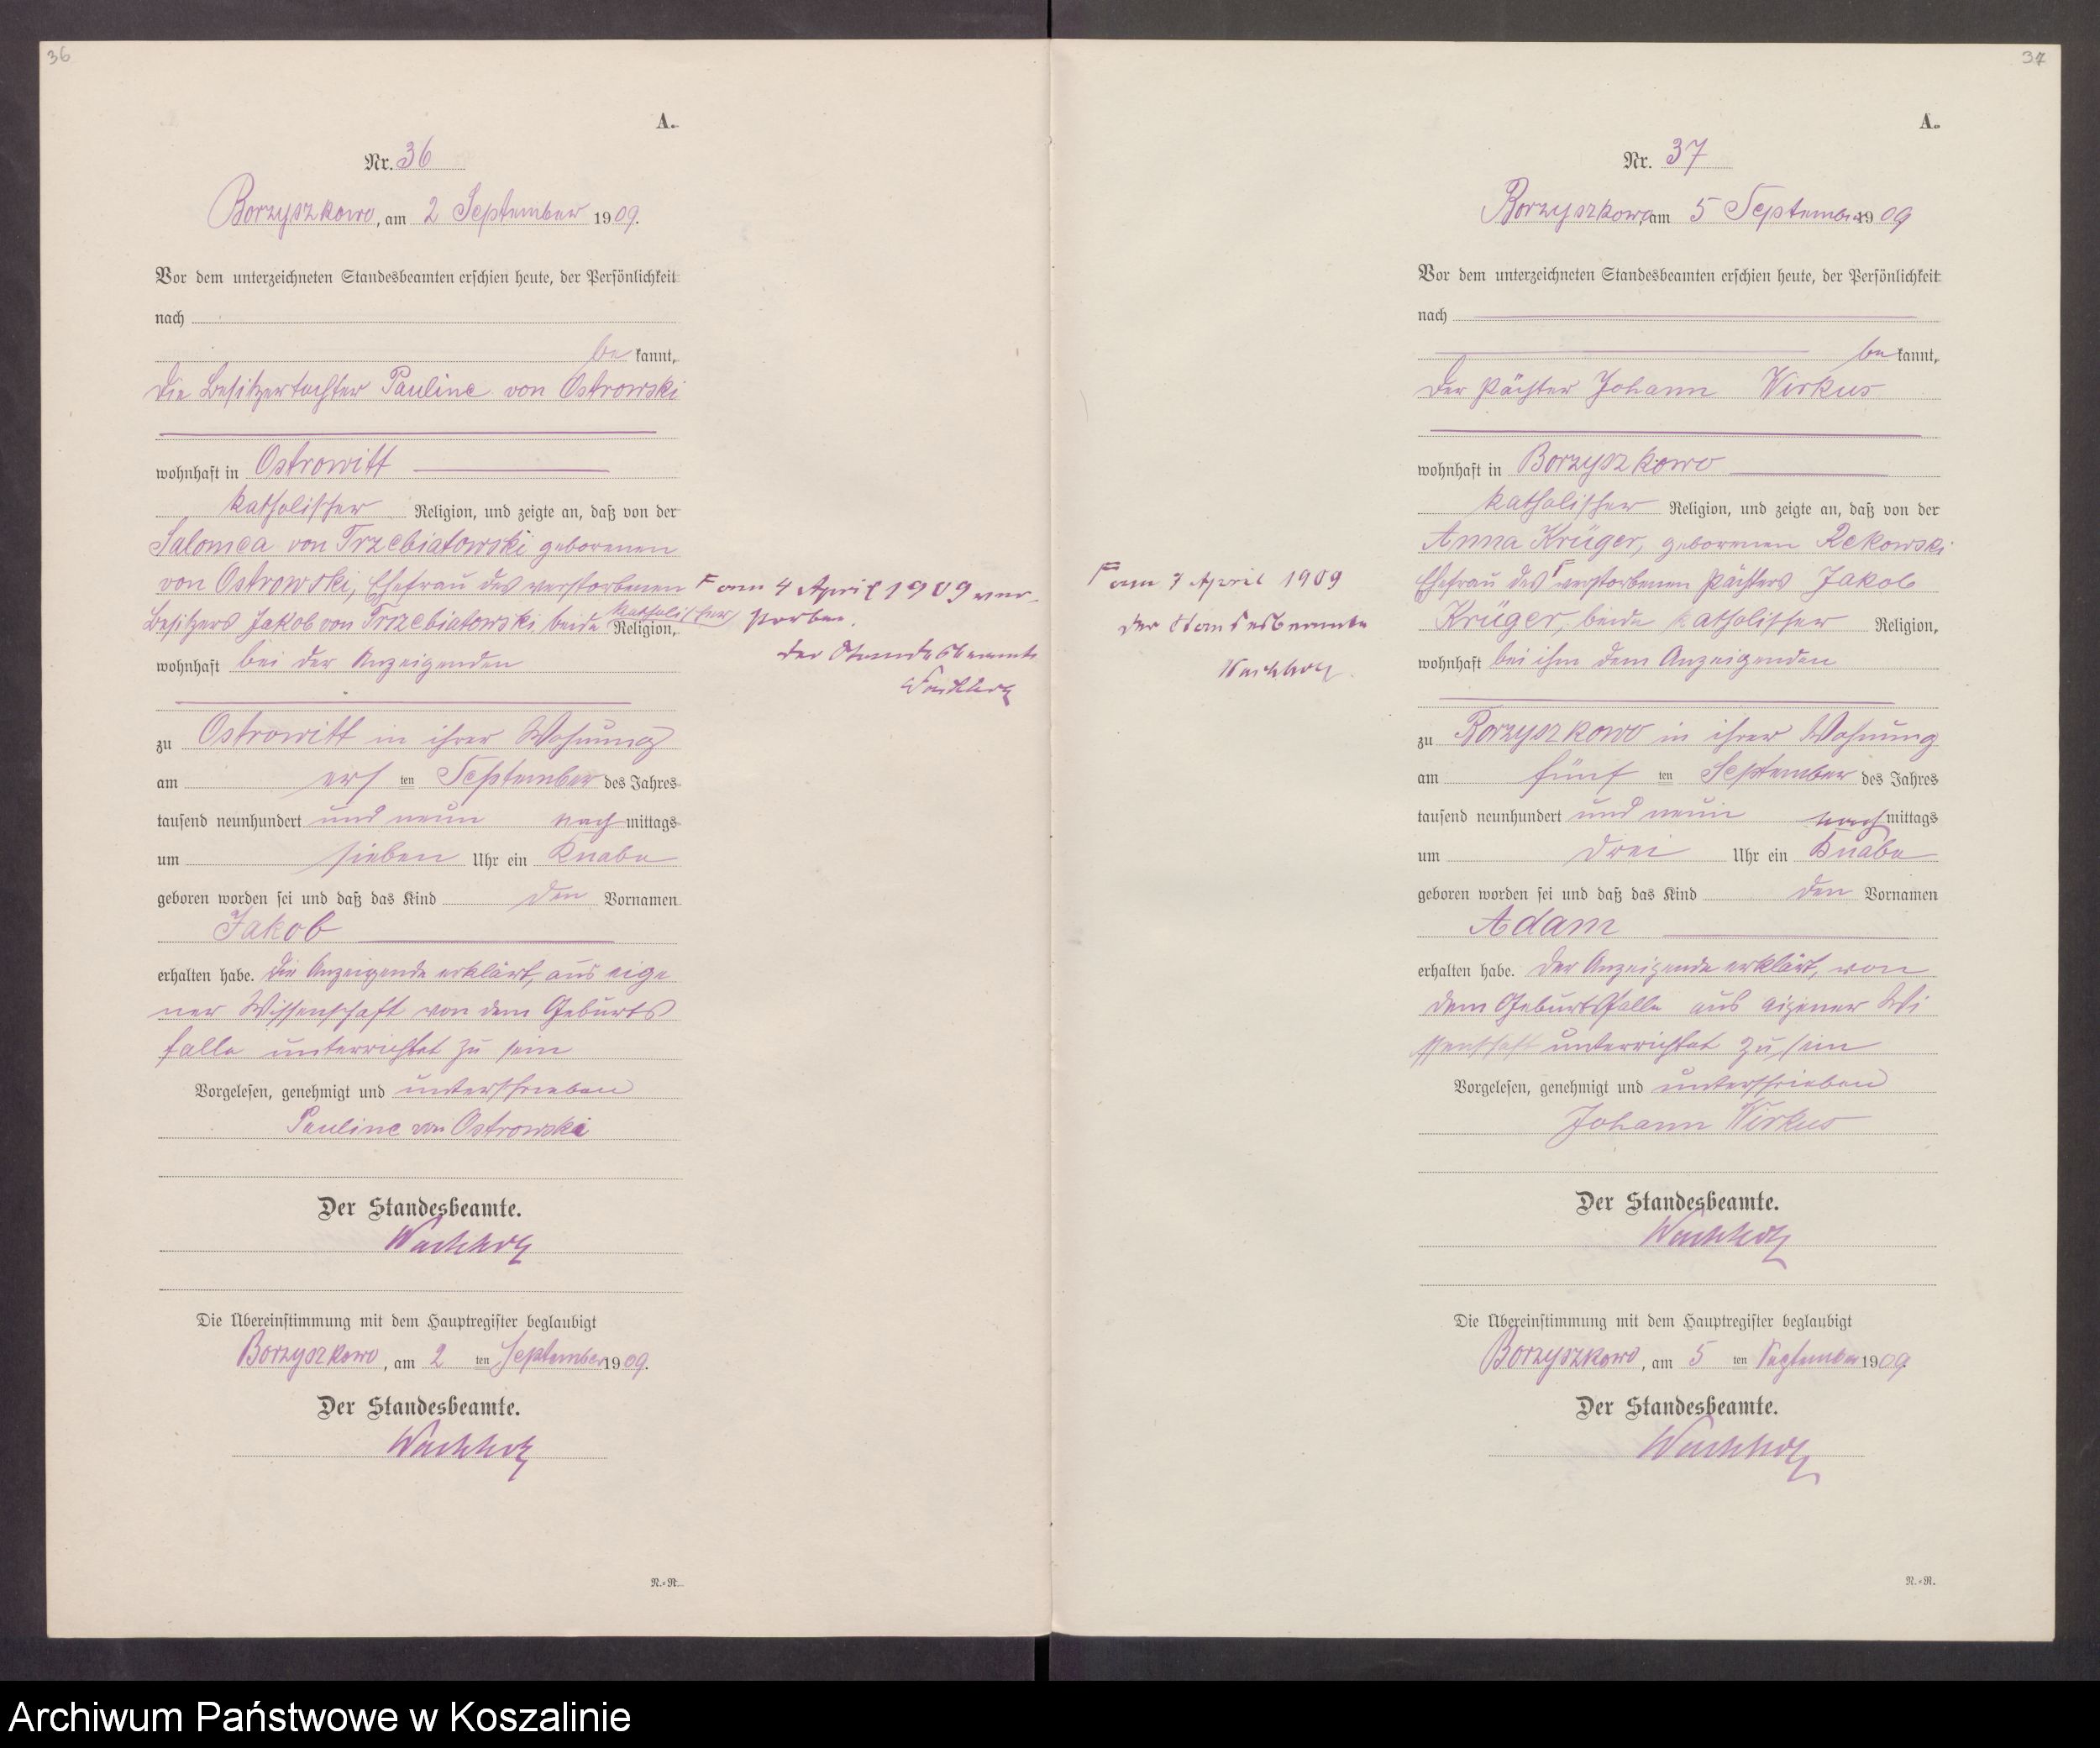 36
A.
Nr. 36
Borzyszkowo, am 2 September 1909.
Vor dem unterzeichneten Standesbeamten erschien heute, der Persönlichkeit
nach
be kannt,
die Besitzertochter Pauline von Ostrowski
wohnhaft in Ostrowitt
katholischer Religion, und zeigte an, daß von der
Salomea von Trzebiatowski geborenen
von Ostrowski, Ehefrau des verstorbenen
Besitzers Jakob von Trzebiatowski, beide katholischer Religion,
wohnhaft bei der Anzeigenden
zu Ostrowitt in ihrer Wohnung
am ers ten September des Jahres
tausend neunhundert und neun nach mittags
um sieben Uhr ein Knabe
geboren worden sei und daß das Kind den Vornamen
Jakob
erhalten habe. Die Anzeigende erklärt, aus eige
ner Wissenschaft von dem Geburts
falle unterrichtet zu sein
Vorgelesen, genehmigt und unterschrieben
Pauline von Ostrowski
Der Standesbeamte.
Wachholz
Die Übereinstimmung mit dem Hauptregister beglaubigt
Borzyszkowo, am 2 ten September 1909.
Der Standesbeamte.
Wachholz
N.-R.
F am 4 April 1909 ver-
storben.
Der Standesbeamte
Wachholz
37
A.
Nr. 37
Borzyszkowo, am 5 September 1909
Vor dem unterzeichneten Standesbeamten erschien heute, der Persönlichkeit
nach
be kannt,
der Pächter Johann Wirkus
wohnhaft in Borzyszkowo
katholischer Religion, und zeigte an, daß von der
Anna Krüger, geborenen Rekowski
Ehefrau des F verstorbenen Pächters Jakob
Krüger, beide katholischer Religion,
wohnhaft bei ihm dem Anzeigenden
zu Borzyszkowo in ihrer Wohnung
am fünf ten September des Jahres
tausend neunhundert und neun nach mittags
um drei Uhr ein Knabe
geboren worden sei und daß das Kind den Vornamen
Adam
erhalten habe. Der Anzeigende erklärt, von
dem Geburtsfalle aus eigener Wi
ssenschaft unterrichtet zu sein
Vorgelesen, genehmigt und unterschrieben
Johann Wirkus
Der Standesbeamte.
Wachholz
Die Übereinstimmung mit dem Hauptregister beglaubigt
Borzyszkowo, am 5 ten September 1909.
Der Standesbeamte.
Wachholz
N.-R.
F am 7 April 1909
Der Standesbeamte
Wachholz
Archiwum Państwowe w Koszalinie